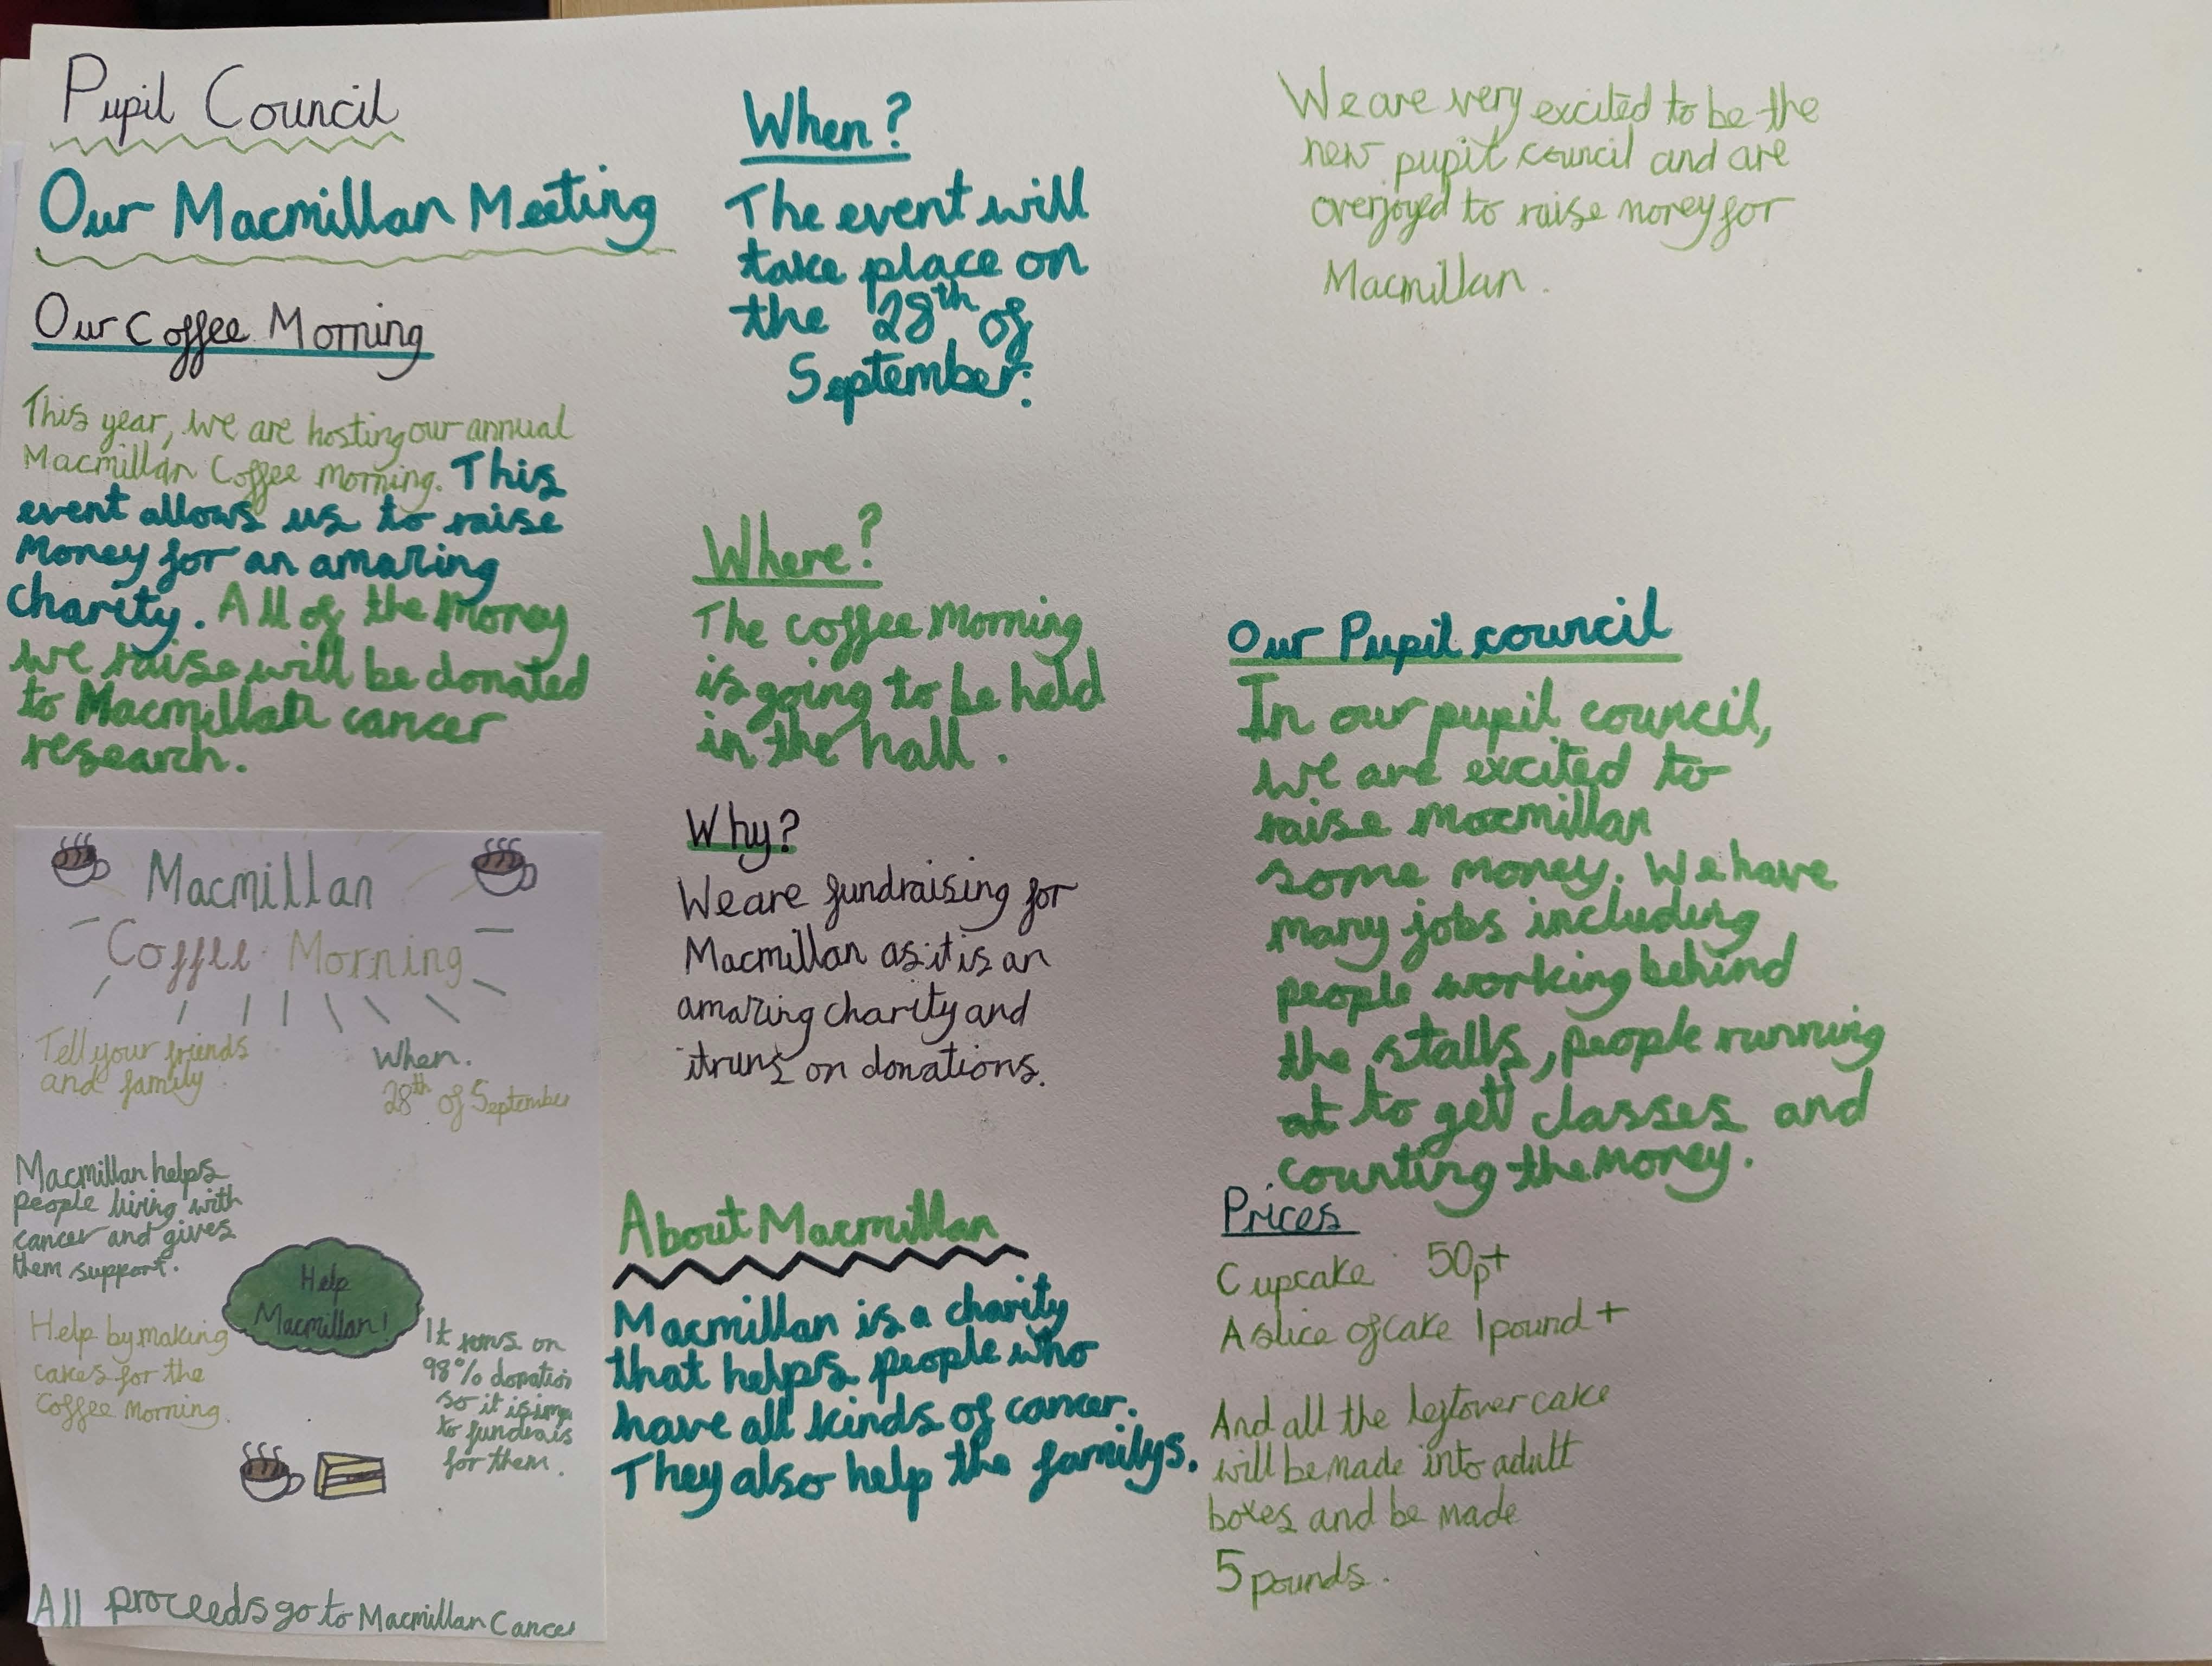 Pupil Council
Our Macmillan Meeting
Our Coffee Morning
This year, we are hosting our annual
Macmillan Coffee Morning. This
event allows us to raise
money for an amazing
charity. All of the money
we raise will be donated
to Macmillan cancer
research.
Macmillan
Coffee Morning
Tell your friends
and family
When.
28th of September
Macmillan helps
people living with
cancer and gives
them support.
Help
Macmillan!
Help by making
cakes for the
Coffee Morning.
It runs on
98% donation
so it is
to fundrais
for them.
All proceeds go to Macmillan Cancer
When?
The event will
take place on
the 28th of
September.
Where?
The coffee morning
is going to be held
in the hall.
Why?
We are fundraising for
Macmillan as it is an
amazing charity and
it runs on donations.
About Macmillan
Macmillan is a charity
that helps people who
have all kinds of cancer.
They also help the familys.
We are very excited to be the
new pupil council and are
overjoyed to raise money for
Macmillan.
Our Pupil council
In our pupil council,
we are excited to
raise macmillan
some money. We have
many jobs including
people working behind
the stalls, people running
at to get classes and
counting the money.
Prices
Cupcake 50p+
A slice of cake 1 pound +
And all the leftover cake
will be made into adult
boxes and be made
5 pounds.